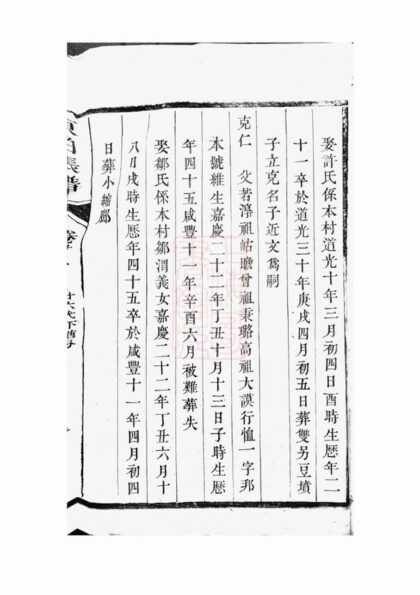 娶許氏係本村道光十年三月初四日酉時生歷年二
十一卒於道光三十年庚戌四月初五日葬雙另豆墳
子立克名子近文爲嗣
克仁 父若淳祖帖瞻曾祖秉璐高祖大謨行恤一字邦
本號維生嘉慶二十二年丁丑十月十三日子時生歷
年四十五咸豐十一年辛酉六月被難葬失
娶鄒氏係本村鄒渭義女嘉慶二十二年丁丑六月十
八日戌時生歷年四十五卒於咸豐十一年四月初四
日葬小
張譜
卷